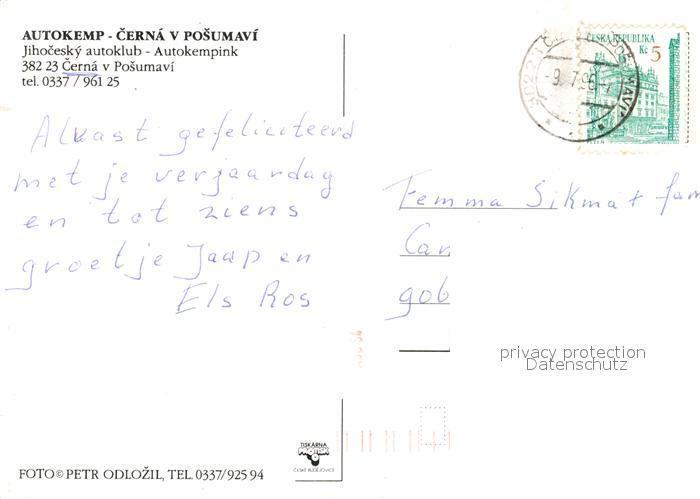 AUTOKEMP - ČERNÁ V POŠUMAVÍ
Jihočeský autoklub - Autokempink
382 23 Černá v Pošumaví
tel. 0337 / 961 25
ČESKÁ REPUBLIKA
Kč 5
-9. 7. 96-
Alvast gefeliciteerd
met je verjaardag
en tot ziens
groetje Jaap en
Els Ros
Femma Sikma + fam
Can
gob
privacy protection
Datenschutz
TISKÁRNA
ČESKÉ BUDĚJOVICE
FOTO © PETR ODLOŽIL, TEL. 0337/925 94